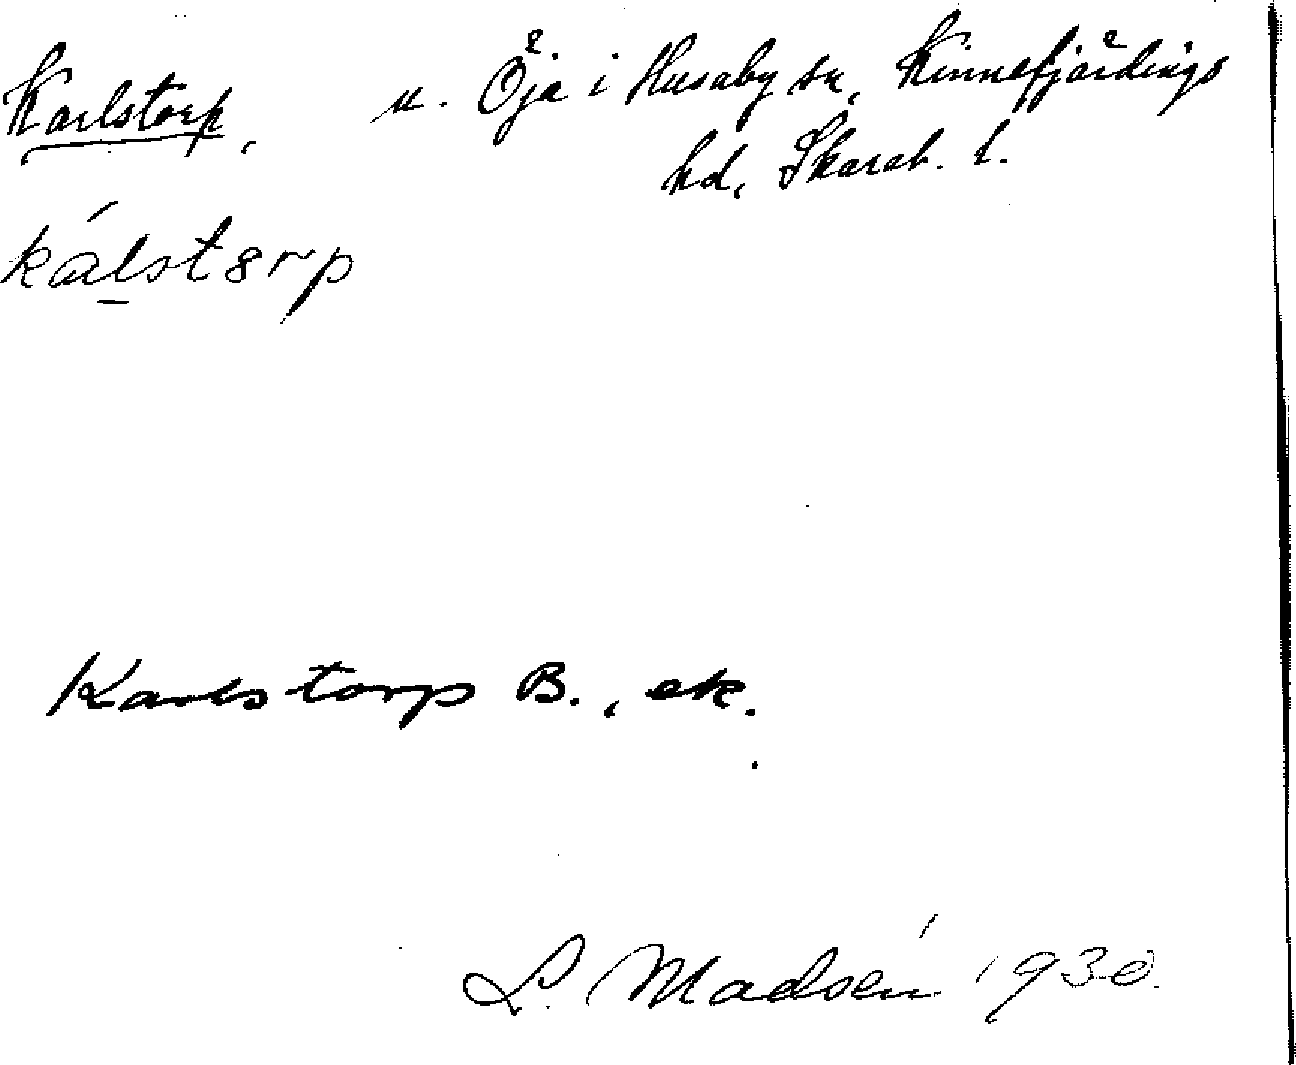 Karlstorp, u. Öja i Husaby sn, Kinnefjärdings
hd, Skarab. l.
kálstorp
Karlstorp B., ek.
L. Madsén 1930.